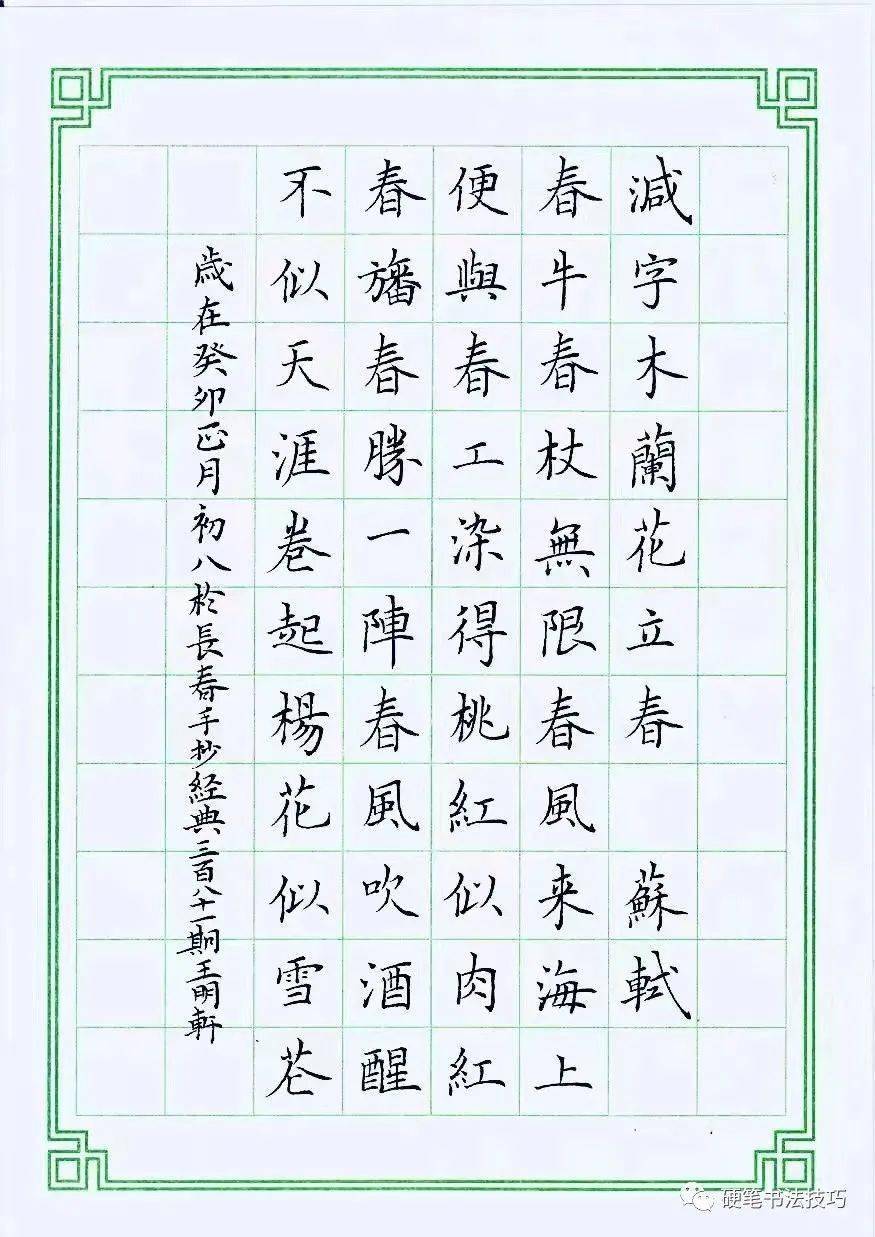 減字木蘭花立春 蘇軾
春牛春杖無限春風来海上
便與春工染得桃紅似肉紅
春旛春勝一陣春風吹酒醒
不似天涯卷起楊花似雪花
歲在癸卯正月初八於長春手抄経典三百八十一期王明軒
硬笔书法技巧